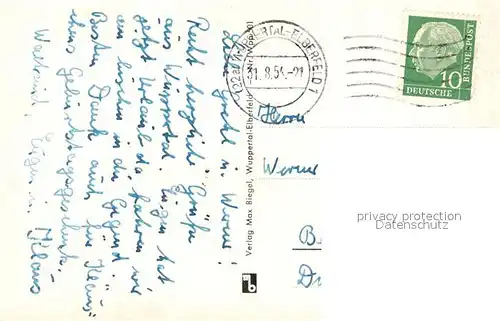 Liebe Gretel u. Werner!
Recht herzliche Grüße
aus Wuppertal. Eugen hat
jetzt Urlaub da fahren wir
ein bischen in die Gegend.
Besten Dank auch für Klaus
Geburtstagsgeschenk.
Eugen u. Klaus
Verlag Max Biegel, Wuppertal-Elberfeld
(22a) WUPPERTAL-ELBERFELD 1
8.54.-21
DEUTSCHE BUNDESPOST
10
Herrn
Werner
B
privacy protection
Damnoni.com